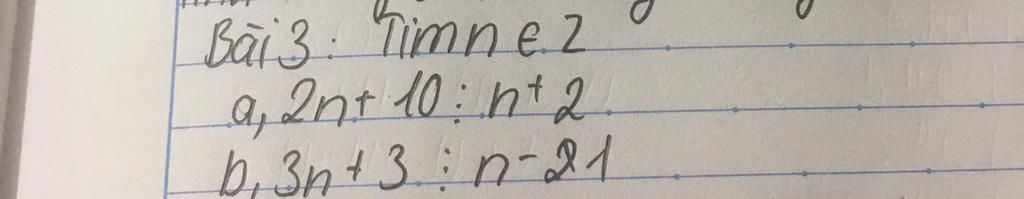 Bài 3: Tìm n ∈ Z
a, 2n + 10 ⋮ n + 2
b, 3n + 3 ⋮ n - 1